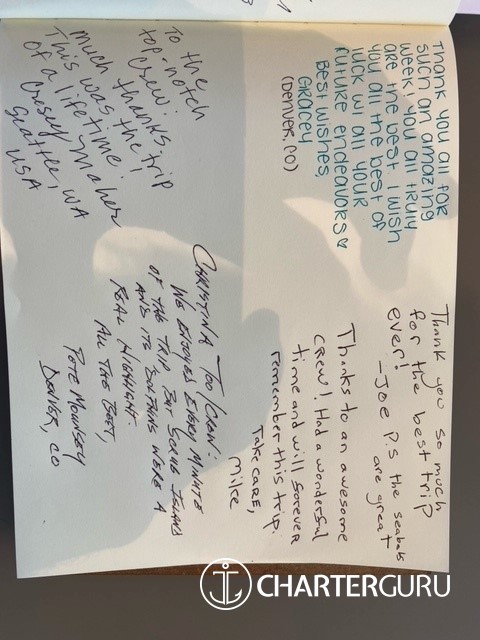 Thank you all for
such an amazing
week! You all truly
are the best. I wish
you all the best of
luck w/ all your
future endeavors
Best wishes,
Gracey
(Denver, CO)
To the
top-notch
crew:
Much thanks!
This was the trip
of a lifetime!
Maher
Seattle, WA
USA
Thank you so much
for the best trip
ever!
- Joe P.S the seabobs
are great
Thanks to an awesome
crew! Had a wonderful
time and will forever
remember this trip.
Take care,
Mike
CHRISTINA TOO/CREW:
WE ENJOYED EVERY MINUTE
OF THE TRIP BUT ISLAND
AND ITS WERE A
REAL HIGHLIGHT.
ALL THE BEST,
PETE
DENVER, CO
CHARTERGURU